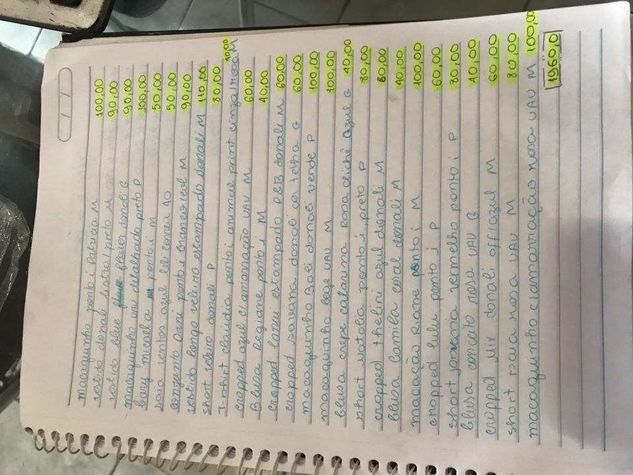 macaquinho ponto i Patricia M 100,00
vestido donali listra/preto M 90,00
vestido blue flower donali G 90,00
macaquinho uau detalhado preto P 100,00
body micaela ponto i M 50,00
saia ventos azul 40 50,00
conjunto Dani ponto i branco/azul M 90,00
vestido longo veluno estampado donali M 110,00
short donali P 80,00
T-shirt claudia ponto i animale print cinza/rosa M 40,00
cropped azul c/ amarração UAU M 60,00
Blusa Regiane ponto i M 40,00
cropped estampado P&B donali M 60,00
cropped savana donali G 60,00
macaquinho donali verde P 100,00
macaquinho bege UAU M 100,00
blusa crepe rosa clichê azul G 40,00
short natalia ponto i preto P 80,00
cropped azul donali M 80,00
blusa camila coral donali M 40,00
macacão Rone ponto i M 100,00
cropped lulu ponto i P 60,00
short vermelho ponto i P 80,00
blusa conceito rosa UAU G 40,00
cropped Mix donali off/azul M 60,00
short saia rosa UAU M 80,00
macaquinho c/amarração rosa UAU M 100,00
1960,0